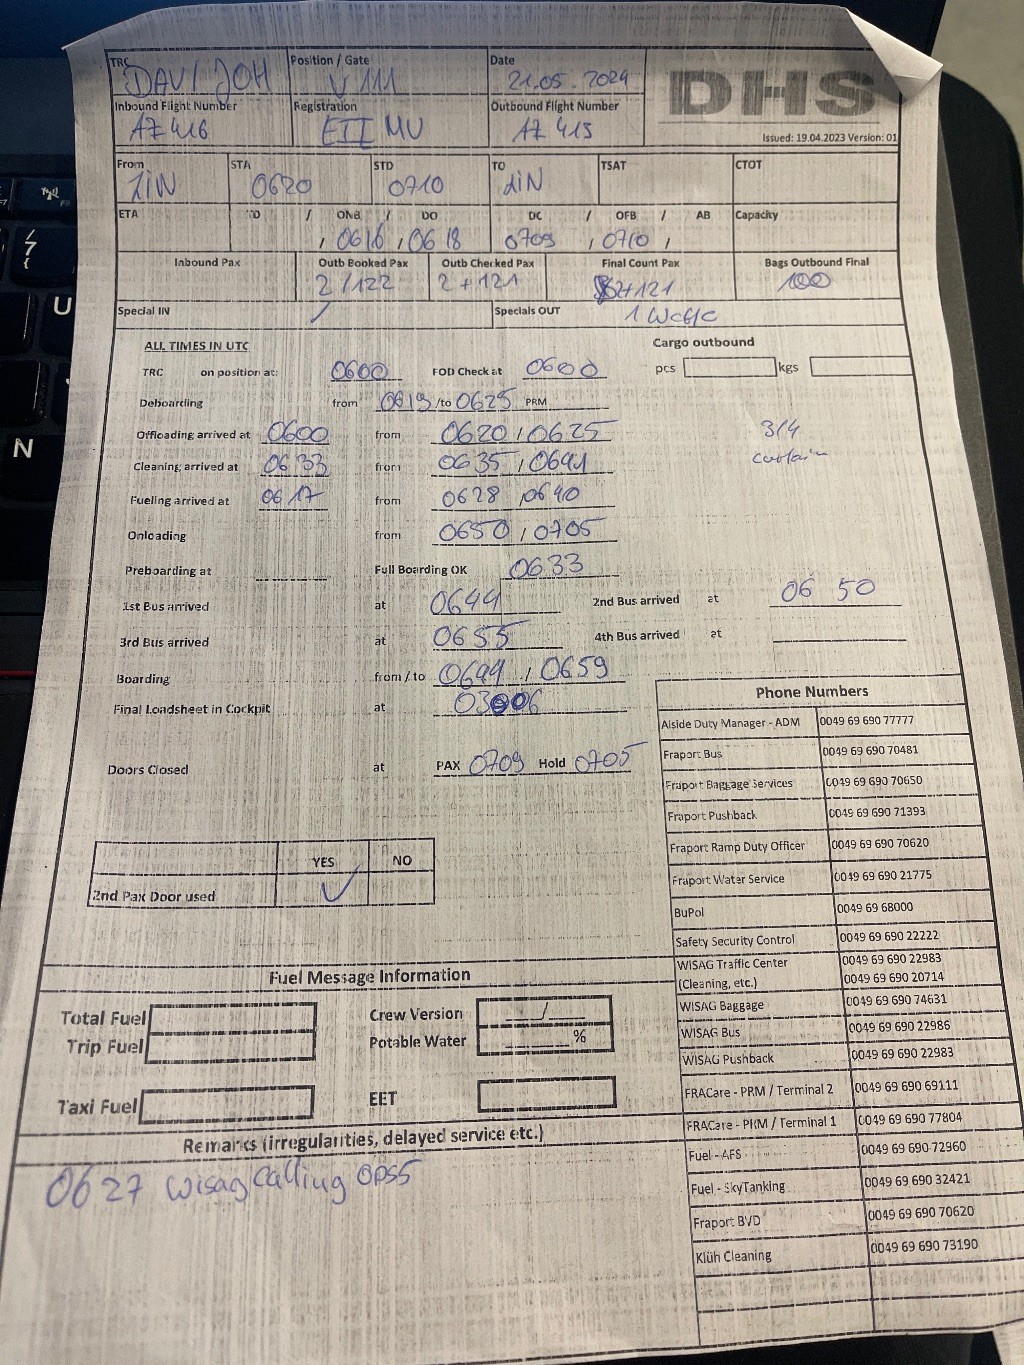 TRC Position / Gate Date
DAV / JOH V 111 21.05.2024 DHS
Inbound Flight Number Registration Outbound Flight Number
AZ 416 EII MU AZ 415 Issued: 19.04.2023 Version: 01
From STA STD TO TSAT CTOT
LIN 0620 0710 LIN
ETA / ONB / DO DC / OFB / AB Capacity
, 0616 , 0618 0709 , 0710 ,
Inbound Pax Outb Booked Pax Outb Checked Pax Final Count Pax Bags Outbound Final
2 / 122 2 + 121 2+121 100
Special IN / Specials OUT 1 WCHC
ALL TIMES IN UTC Cargo outbound
TRC on position at: 0600 FOD Check at 0600 pcs kgs
Deboarding from 0619 /to 0625 PRM
Offloading arrived at 0600 from 0620 , 0625 314
Cleaning arrived at 0633 from 0635 , 0641 curtain
Fueling arrived at 0617 from 0628 , 0640
Onloading from 0650 , 0705
Preboarding at Full Boarding OK 0633
1st Bus arrived at 0644 2nd Bus arrived at 06 50
3rd Bus arrived at 0655 4th Bus arrived at
Boarding from / to 0644 , 0659
Final Loadsheet in Cockpit at
Doors Closed at PAX 0709 Hold 0705
YES NO
2nd Pax Door used ✓
Phone Numbers
Aiside Duty Manager - ADM 0049 69 690 77777
Fraport Bus 0049 69 690 70481
Fraport Baggage Services 0049 69 690 70650
Fraport Pushback 0049 69 690 71393
Fraport Ramp Duty Officer 0049 69 690 70620
Fraport Water Service 0049 69 690 21775
BuPol 0049 69 68000
Safety Security Control 0049 69 690 22222
WISAG Traffic Center 0049 69 690 22983
(Cleaning, etc.) 0049 69 690 20714
WISAG Baggage 0049 69 690 74631
WISAG Bus 0049 69 690 22986
WISAG Pushback 0049 69 690 22983
FRACare - PRM / Terminal 2 0049 69 690 69111
FRACare - PRM / Terminal 1 0049 69 690 77804
Fuel - AFS 0049 69 690-72960
Fuel - SkyTanking 0049 69 690 32421
Fraport BVD 0049 69 690 70620
Klüh Cleaning 0049 69 690 73190
Fuel Message Information
Total Fuel Crew Version /
Trip Fuel Potable Water %
Taxi Fuel EET
Remarks (irregularities, delayed service etc.)
0627 Wisag Calling OPSS